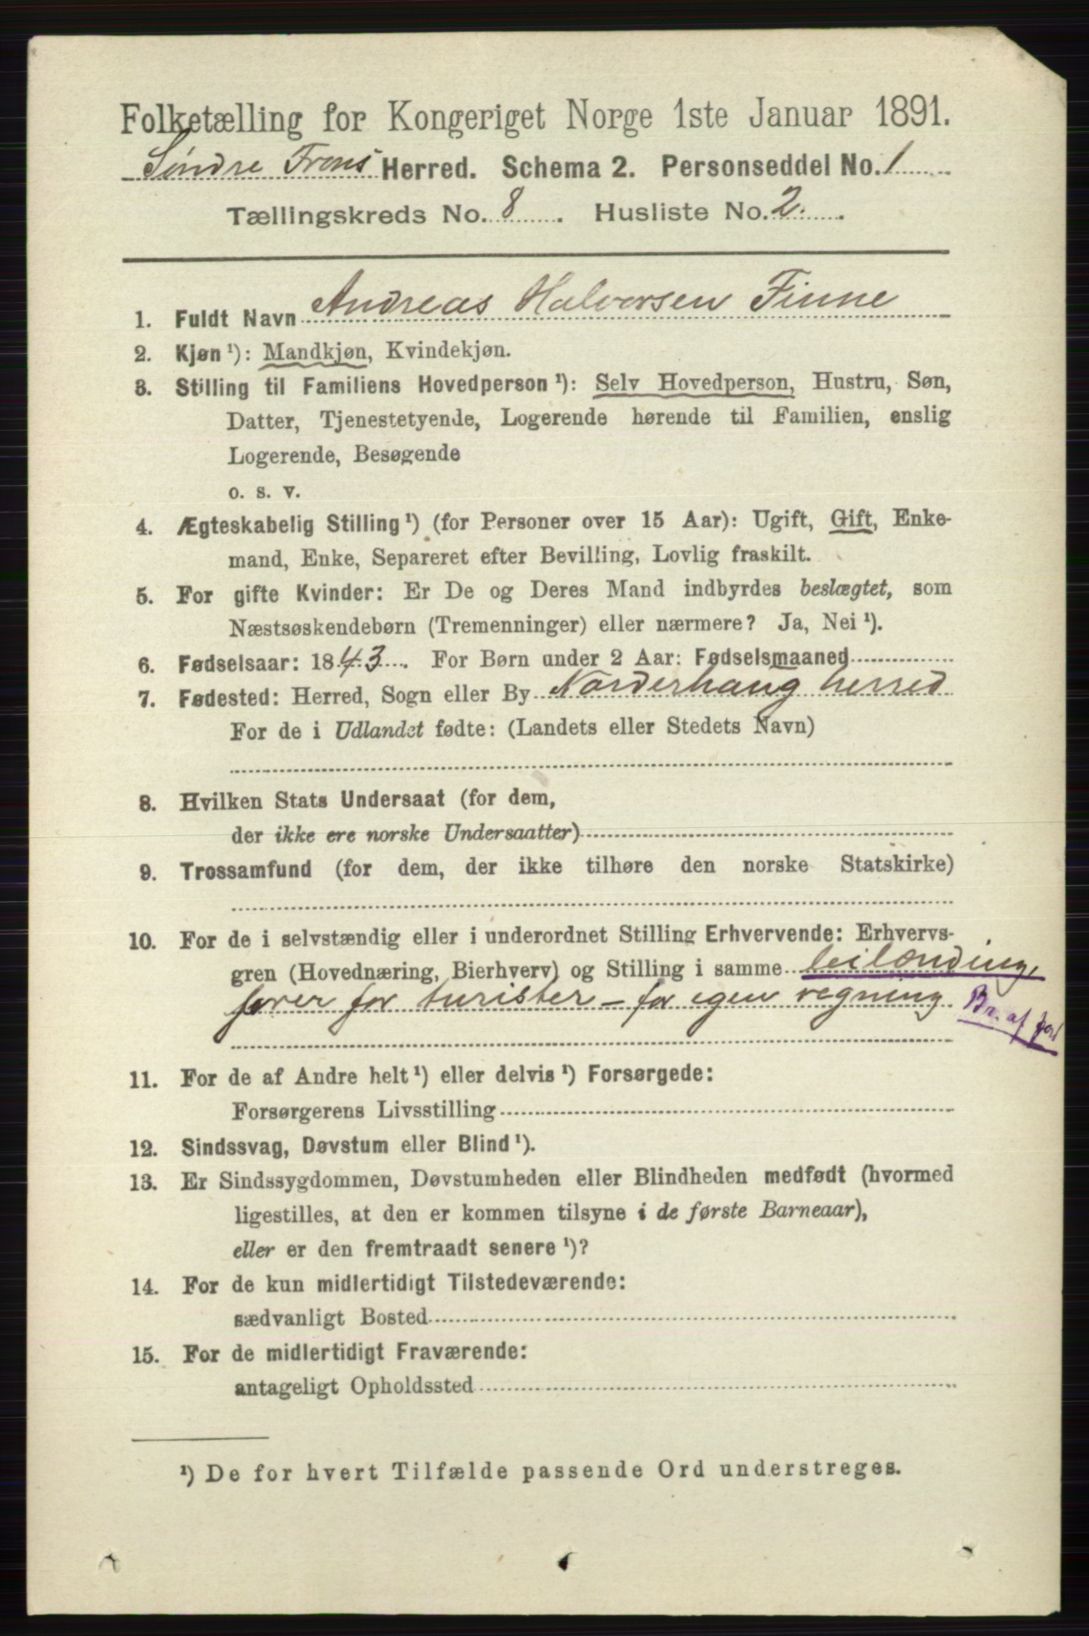 Folketælling for Kongeriget Norge 1ste Januar 1891.
Söndre Frons Herred. Schema 2. Personseddel No. 1
Tællingskreds No. 8. Husliste No. 2.
1. Fuldt Navn Andreas Halvorsen Finne
2. Kjøn ¹): Mandkjøn, Kvindekjøn.
3. Stilling til Familiens Hovedperson ¹): Selv Hovedperson, Hustru, Søn,
Datter, Tjenestetyende, Logerende hørende til Familien, enslig
Logerende, Besøgende
o. s. v.
4. Ægteskabelig Stilling ¹) (for Personer over 15 Aar): Ugift, Gift, Enke-
mand, Enke, Separeret efter Bevilling, Lovlig fraskilt.
5. For gifte Kvinder: Er De og Deres Mand indbyrdes beslægtet, som
Næstsøskendebørn (Tremenninger) eller nærmere? Ja, Nei ¹).
6. Fødselsaar: 1843. For Børn under 2 Aar: Fødselsmaaned
7. Fødested: Herred, Sogn eller By Norderhaug herred
For de i Udlandet fødte: (Landets eller Stedets Navn)
8. Hvilken Stats Undersaat (for dem,
der ikke ere norske Undersaatter)
9. Trossamfund (for dem, der ikke tilhøre den norske Statskirke)
10. For de i selvstændig eller i underordnet Stilling Erhvervende: Erhvervs-
gren (Hovednæring, Bierhverv) og Stilling i samme leilænding,
fører for turister – for egen regning Br. af jord
11. For de af Andre helt ¹) eller delvis ¹) Forsørgede:
Forsørgerens Livsstilling
12. Sindssvag, Døvstum eller Blind ¹).
13. Er Sindssygdommen, Døvstumheden eller Blindheden medfødt (hvormed
ligestilles, at den er kommen tilsyne i de første Barneaar),
eller er den fremtraadt senere ¹)?
14. For de kun midlertidigt Tilstedeværende:
sædvanligt Bosted
15. For de midlertidigt Fraværende:
antageligt Opholdssted
¹) De for hvert Tilfælde passende Ord understreges.